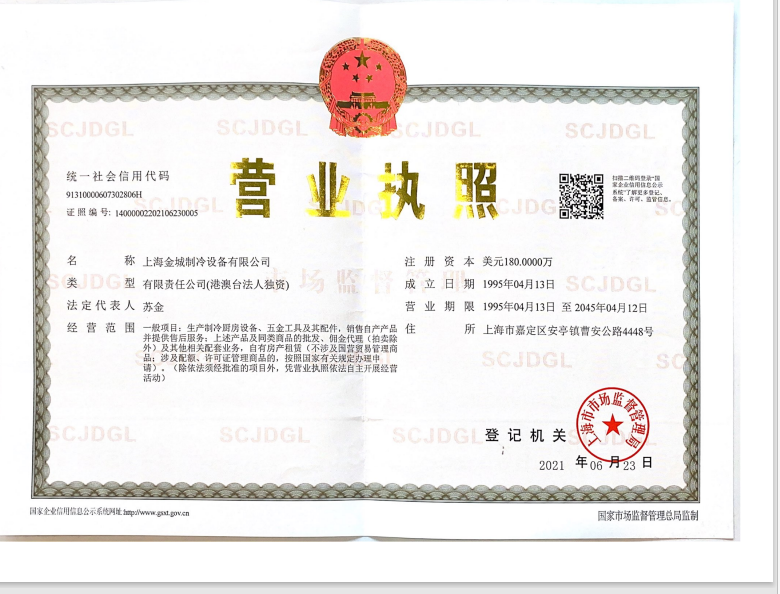 营业执照
统一社会信用代码
91310000607302806H
证照编号: 14000002202106230005
扫描二维码登录“国
家企业信用信息公示
系统”了解更多登记、
备案、许可、监管信息。
名 称 上海金城制冷设备有限公司
类 型 有限责任公司(港澳台法人独资)
法定代表人 苏金
经营范围 一般项目：生产制冷厨房设备、五金工具及其配件，销售自产产品
并提供售后服务；上述产品及同类商品的批发、佣金代理（拍卖除
外）及其他相关配套业务，自有房产租赁（不涉及国营贸易管理商
品；涉及配额、许可证管理商品的，按照国家有关规定办理申
请）。（除依法须经批准的项目外，凭营业执照依法自主开展经营
活动）
注册资本 美元180.0000万
成立日期 1995年04月13日
营业期限 1995年04月13日 至 2045年04月12日
住 所 上海市嘉定区安亭镇曹安公路4448号
登记机关
上海市市场监督管理局
2021 年 06 月 23 日
国家企业信用信息公示系统网址:http://www.gsxt.gov.cn
国家市场监督管理总局监制
SCJDGL SCJDGL SCJDGL SCJDGL
市场监督管理